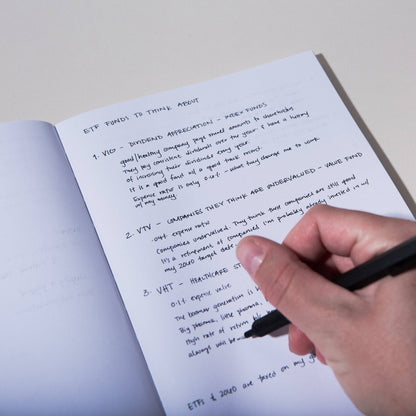 ETF FUNDS TO THINK ABOUT
1. VIG - DIVIDEND APPRECIATION - INDEX FUNDS
good/healthy company pays owned amounts to shareholders
They pay consistent dividends over the year & have a history
of increasing their dividends every year.
It is a good fund w/ a good track record.
Expense ratio is only - what they charge me to work
w/ my money
2. VTV - COMPANIES THEY THINK ARE UNDERVALUED - VALUE FUND
expense ratio
Companies undervalued. They think these companies are still good
It's a refinement of companies I'm probably already invested in w/
my 2040 target date
3. VHT - HEALTHCARE
expense value
The boomer generation is
Big pharma, little pharma,
High rate of return
always will be
ETFs & 2040 are taxed on my